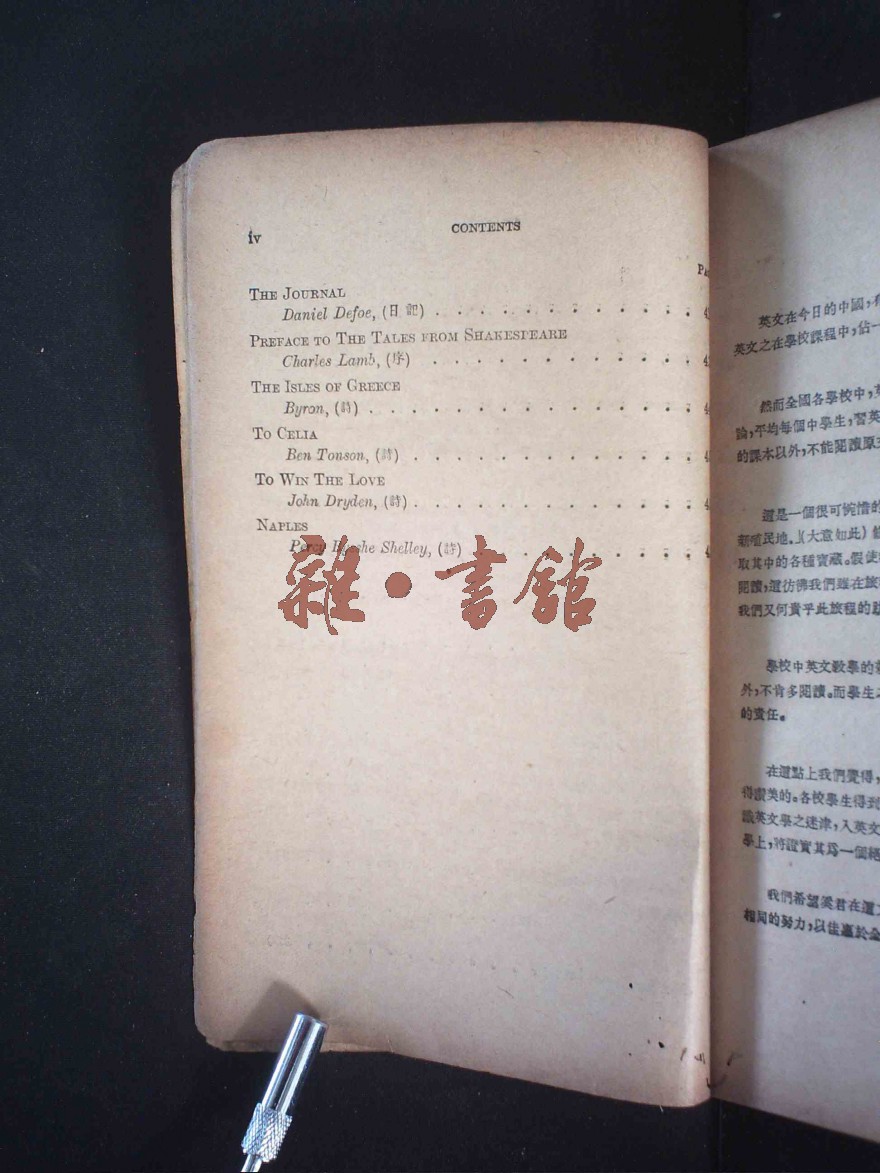 iv
CONTENTS
THE JOURNAL
Daniel Defoe, (日記) . . . . . . . . . . . .
PREFACE TO THE TALES FROM SHAKESPEARE
Charles Lamb, (序) . . . . . . . . . . . .
THE ISLES OF GREECE
Byron, (詩) . . . . . . . . . . . .
TO CELIA
Ben Tonson, (詩) . . . . . . . . . . . .
TO WIN THE LOVE
John Dryden, (詩) . . . . . . . . . . . .
NAPLES
Percy Bysshe Shelley, (詩) . . . . . . . . .
雜·書館
英文在今日的中國,
英文之在學校課程中,佔一
然而全國各學校中,
論,平均每個中學生,習英
的課本以外,不能閱讀原
這是一個很可惋惜的
殖民地。』(大意如此)
取其中的各種寶藏。假使
閱讀,這彷彿我們雖在旅
我們又何貴乎此旅程的
學校中英文教學的
外,不肯多閱讀。而學生
的責任。
在這點上我們覺得,
得讚美的。各校學生得到
識英文學之迷津,入英文
學上,將證實其爲一個
我們希望 君在這
相同的努力,以佳惠於全